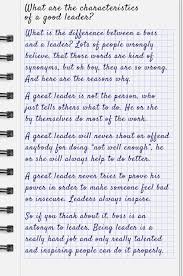 What are the characteristics
of a good leader?
What is the difference between a boss
and a leader? Lots of people wrongly
believe, that those words are kind of
synonyms, but oh boy, they are so wrong.
And here are the reasons why.
A great leader is not the person, who
just tells others what to do. He or she
by themselves do most of the work.
A great leader will never shout or offend
anybody for doing "not well enough", he
or she will always help to do better.
A great leader never tries to prove his
power in order to make someone feel bad
or insecure. Leaders always inspire.
So if you think about it, boss is an
antonym to leader. Being leader is a
really hard job and only really talented
and inspiring people can do it properly.